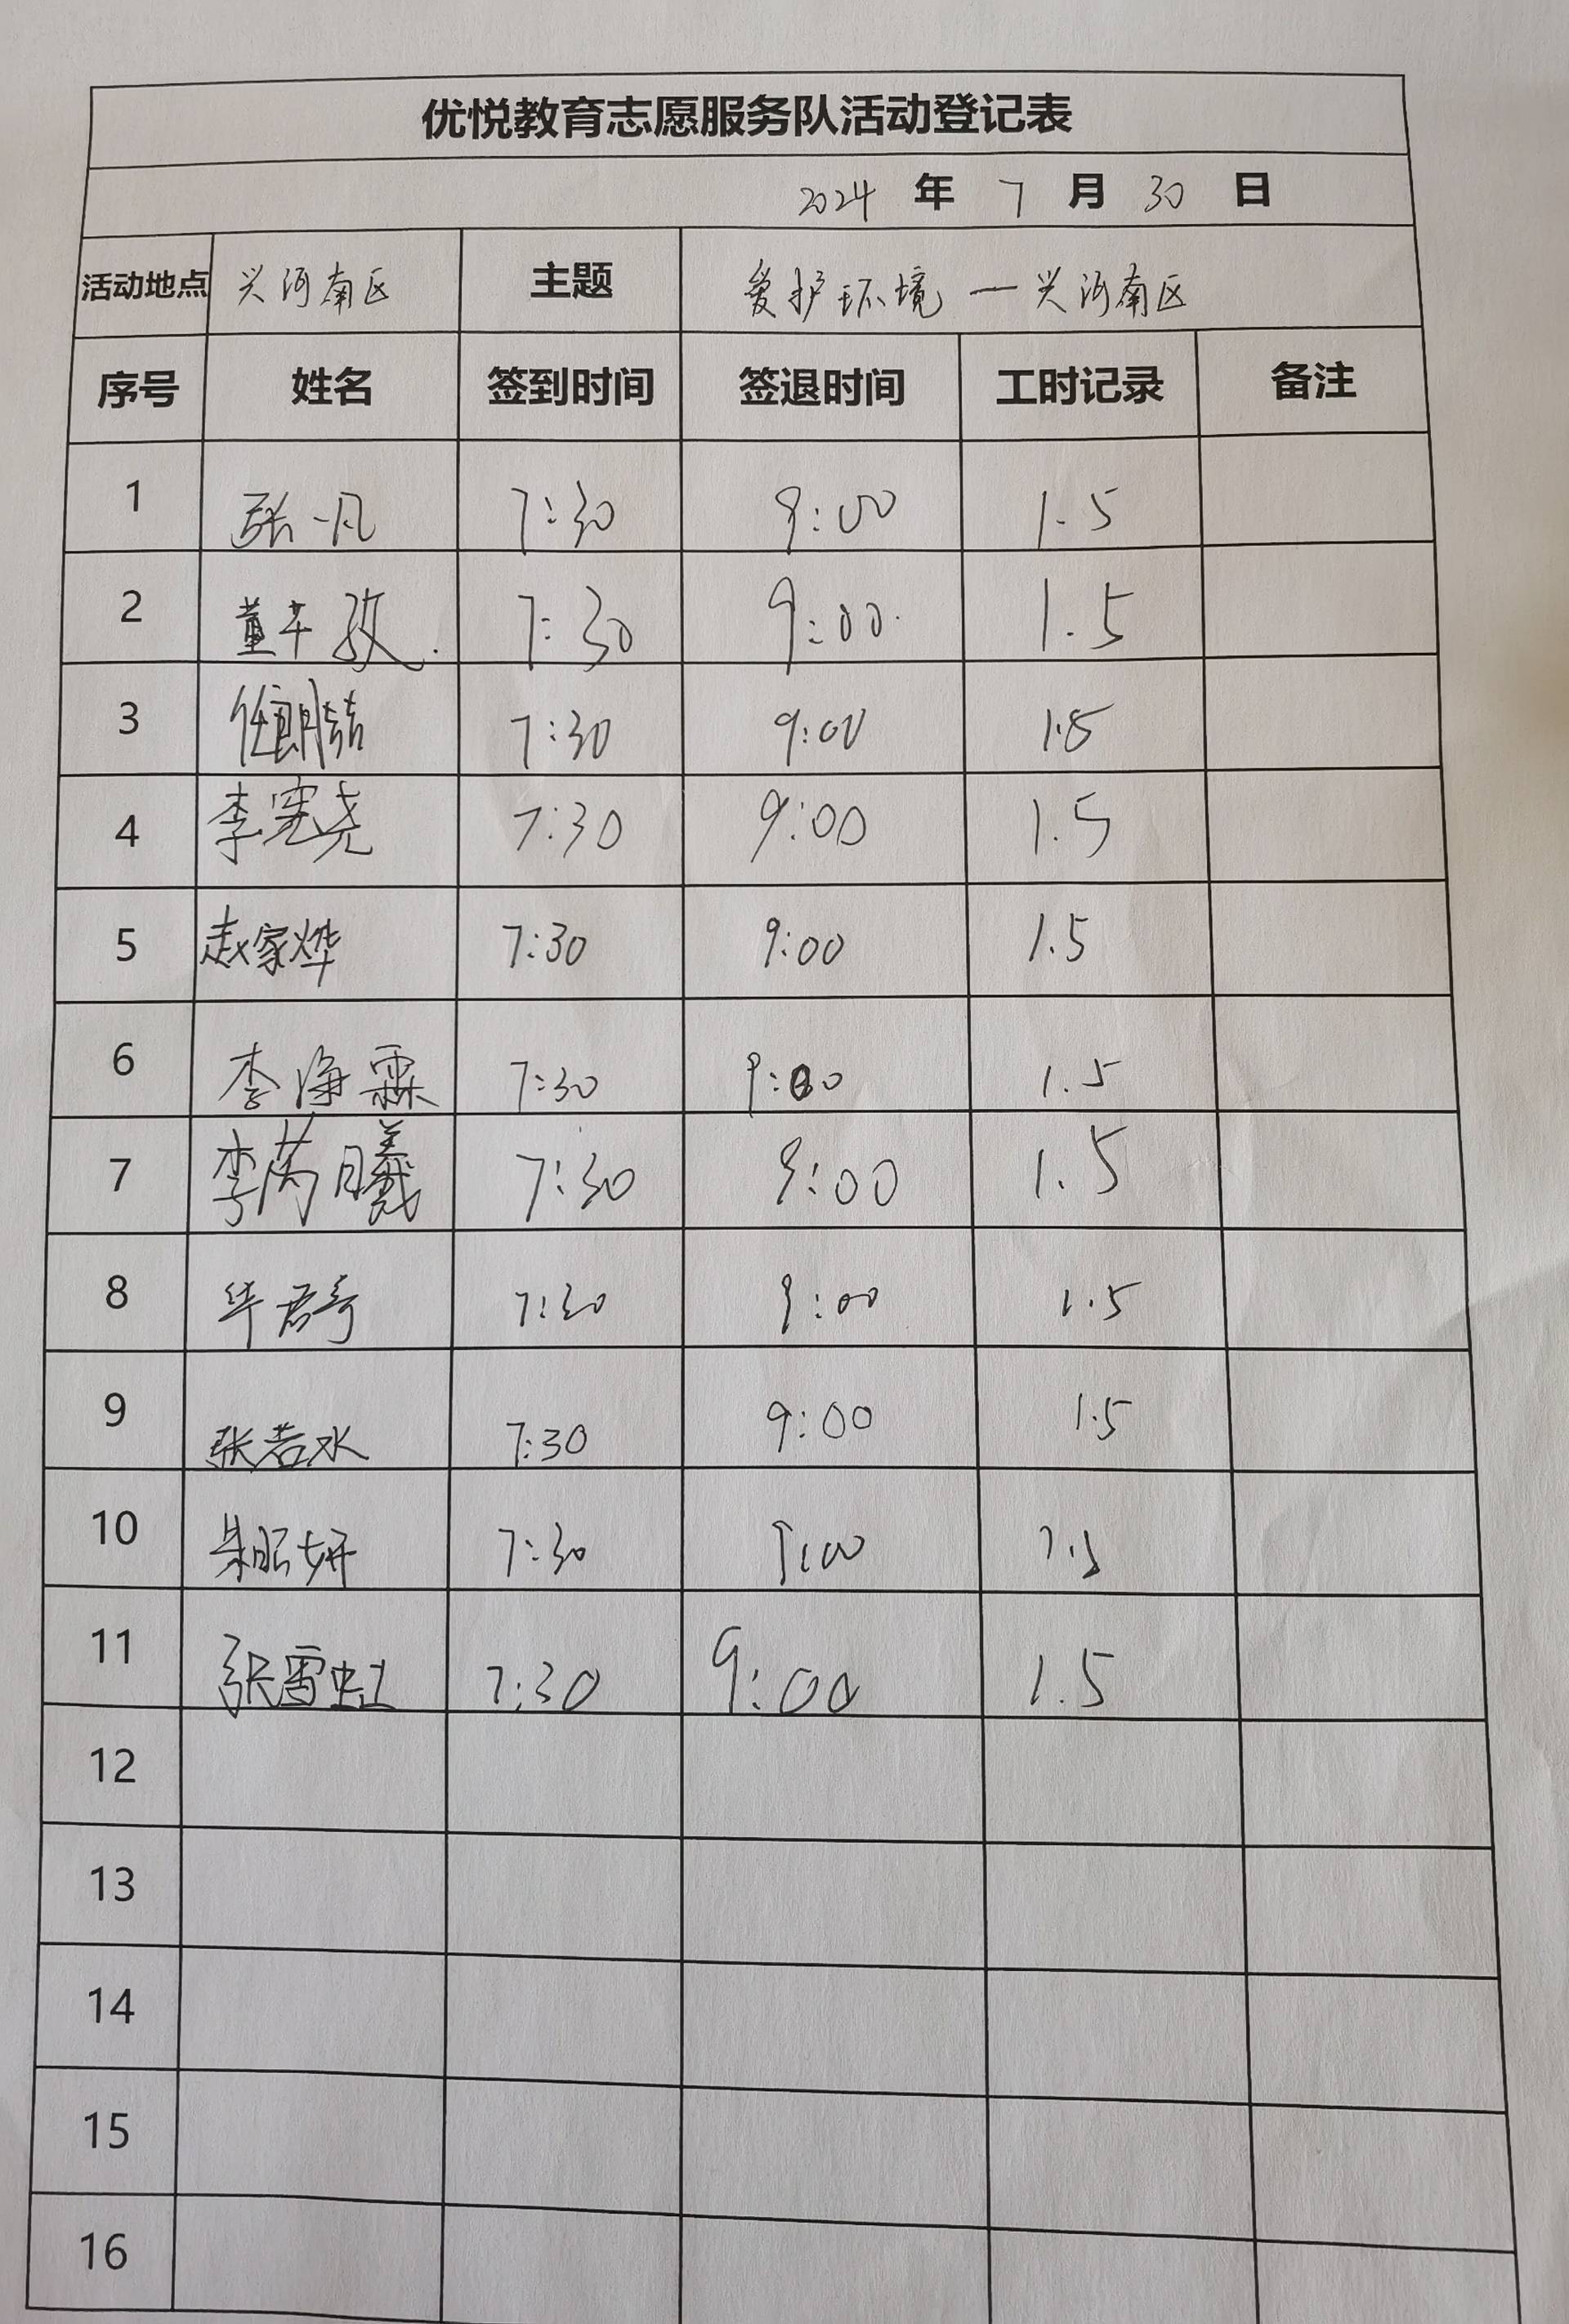 优悦教育志愿服务队活动登记表
2024 年 7 月 30 日
活动地点 兴河南区 主题 爱护环境一兴河南区
序号 姓名 签到时间 签退时间 工时记录 备注
1 张一凡 7:30 9:00 1.5
2 董千孜 7:30 9:00 1.5
3 任朗喆 7:30 9:00 1.5
4 李宪尧 7:30 9:00 1.5
5 赵家烨 7:30 9:00 1.5
6 李海霖 7:30 9:00 1.5
7 李芮曦 7:30 9:00 1.5
8 华君奇 7:30 9:00 1.5
9 张若水 7:30 9:00 1.5
10 朱昭妍 7:30 9:00 1.5
11 张雷虹 7:30 9:00 1.5
12
13
14
15
16